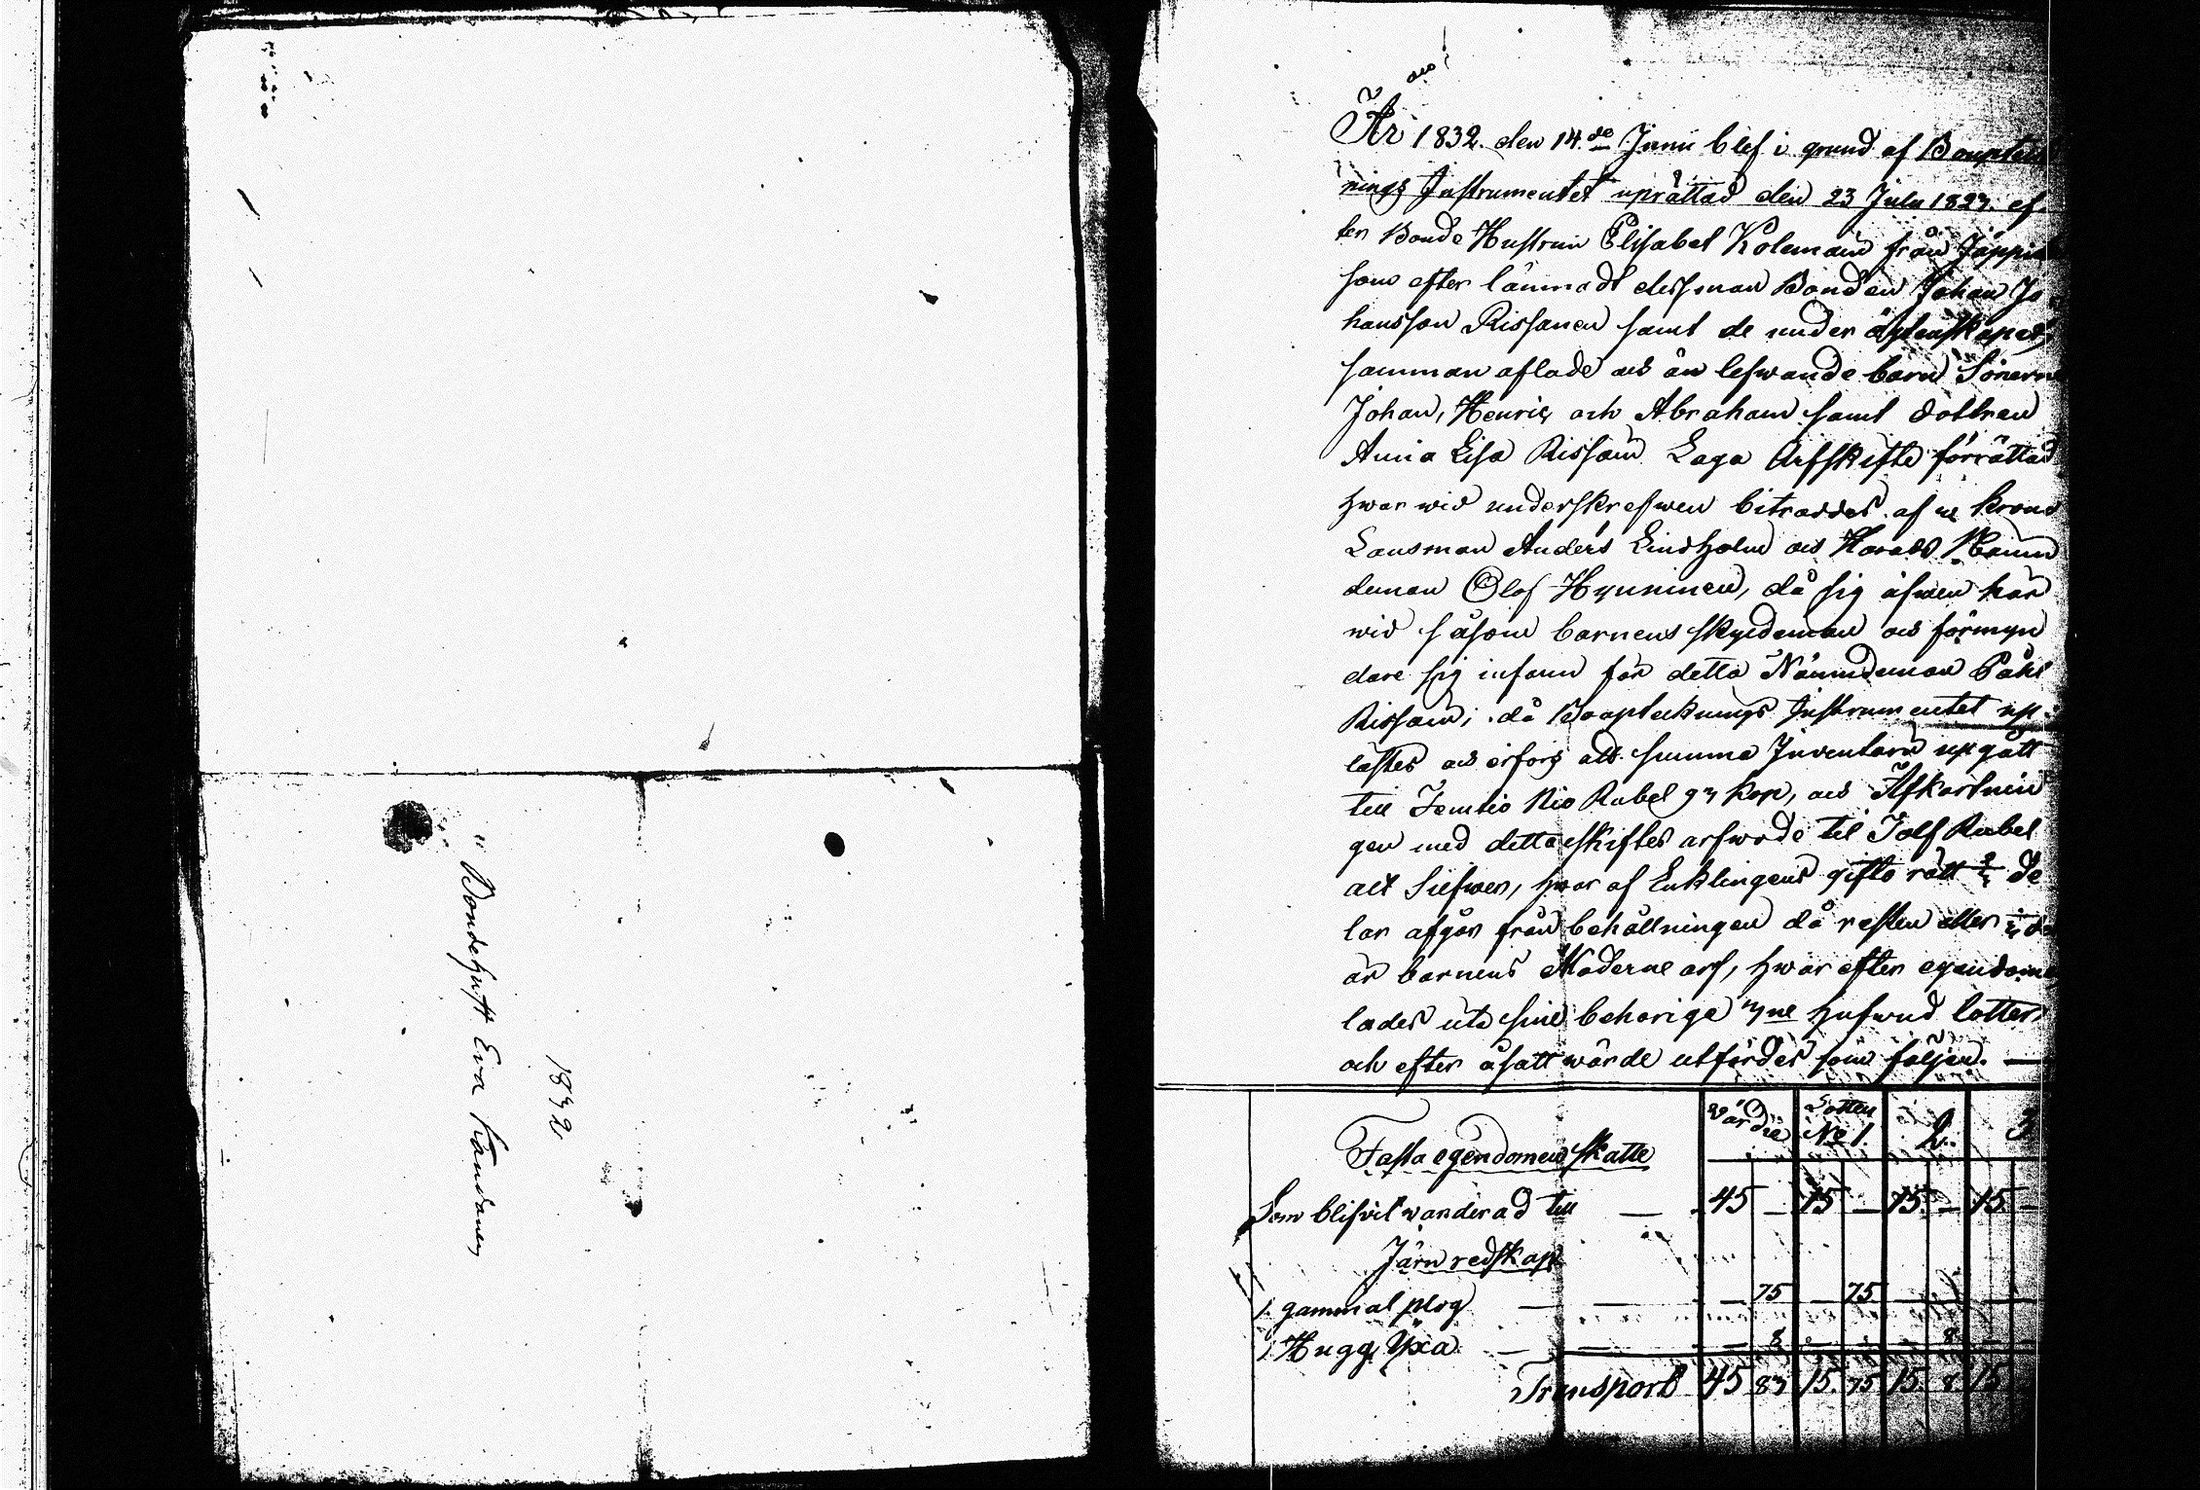 Bondehust Eva Kandanen
1832
År 1832. den 14.de Junii blef i grund af Bouptek
nings Instrumentet uprättad den 23 Julii 1827. ef
ter Bonde Hustrun Elisabet Kolemain från Jäppi
som efter lämnadt dess man Bonden Johan Jo
hansson Rissanen samt de under ägtenskapet
samman aflade och än lefwande barn Sönerne
Johan, Henric och Abraham samt dottren
Anna Lisa Rissain Laga Arfskifte förrättad
hwar wid underskrefwen biträddes af Krono
Länsman Anders Lindholm och Härads Nämn
deman Olof Hynninen, då sig äfwen här
wid såsom barnens skyldeman och förmyn
dare sig infann för detta Nämndeman Påhl
Rissain; då Bouptecknings Instrumentet up
lästes och erfors att summa Inventarii upgått
till Femtio Nio Rubel 97 kop, och Afkortnin
gen med detta skiftes arfwode til Tolf Rubel
alt Silfwer, hwar af Enklingens gifto rätt 2/3 de
lar afgår från behållningen då resten eller 1/3 de
är barnens Moderne arf, hwar efter egendome
lades uti sine behörige 7ne hufwud lotter
och efter åsatt wärde utfördes som följer. —
Värdie | Lotten No 1. | 2. | 3
Fasta egendomens skatte
Som blifvit wärderad till — 45 — 15 — 15. — 15. —
Järn redskap
1. gammal plog — — — 75 — 75 — — —
1 Hugg Yxa — — — 8 — — — 8 —
Transport 45 83 15. 75 15. 8 15